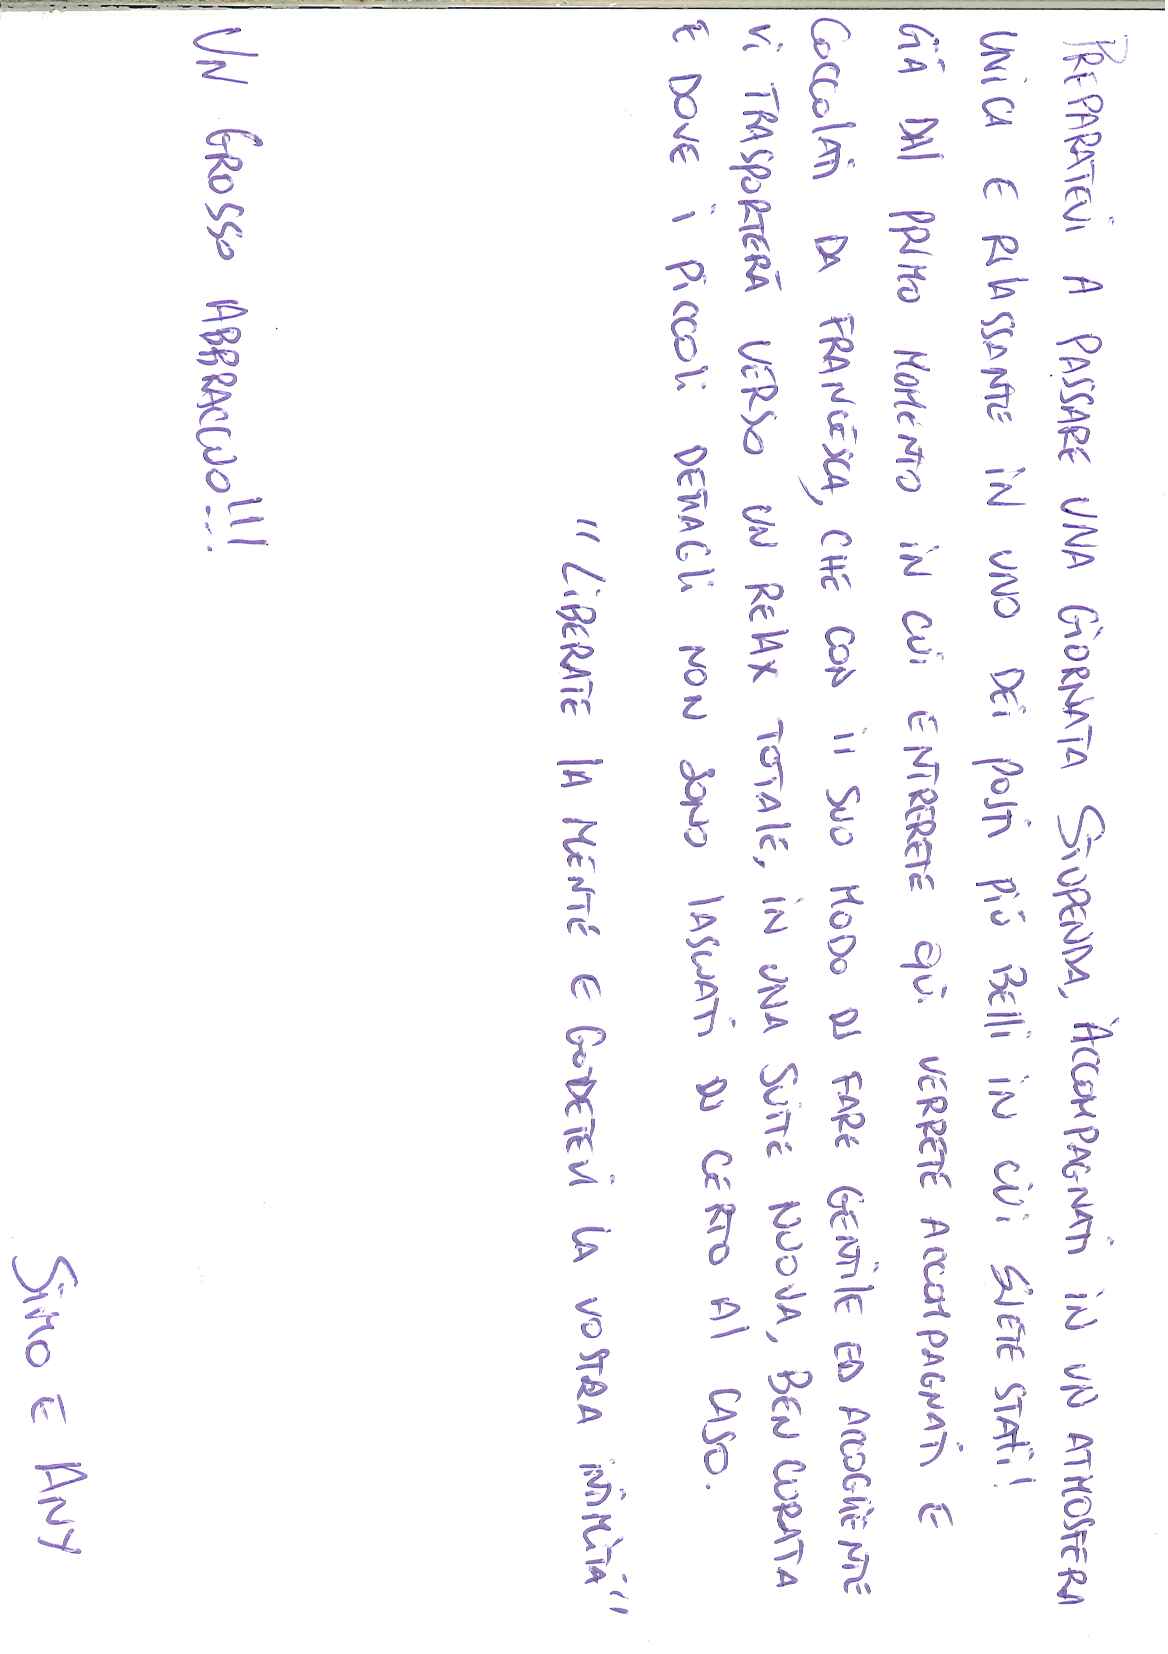 PREPARATEVI A PASSARE UNA GIORNATA STUPENDA, ACCOMPAGNATI IN UN ATMOSFERA
UNICA E RILASSANTE IN UNO DEI POSTI PIÙ BELLI IN CUI SIETE STATI!
GIÀ DAL PRIMO MOMENTO IN CUI ENTRERETE QUI VERRETE ACCOMPAGNATI E
COCCOLATI DA FRANCESCA, CHE CON IL SUO MODO DI FARE GENTILE ED ACCOGLIENTE
VI TRASPORTERÀ VERSO UN RELAX TOTALE, IN UNA SUITE NUOVA, BEN CURATA
E DOVE I PICCOLI DETTAGLI NON SONO LASCIATI DI CERTO AL CASO.
"LIBERATE LA MENTE E GODETEVI LA VOSTRA INTIMITÀ"
UN GROSSO ABBRACCIO!!!
SIMO E ANY